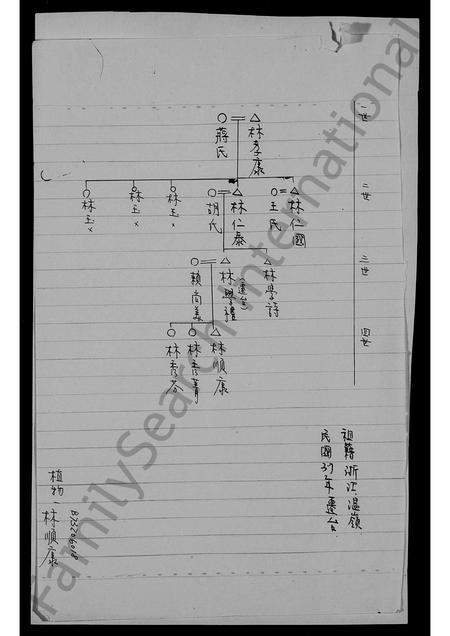 一世
林孝康
蔣氏
二世
林仁國
王氏
林仁泰
胡氏
林玉×
林玉×
林玉×
三世
林學詩
林學禮
(遷台)
賴尚美
四世
林順康
林秀菁
林秀芬
祖籍浙江溫嶺
民國37年遷台
植物一
林順康
B75206018
FamilySearch International